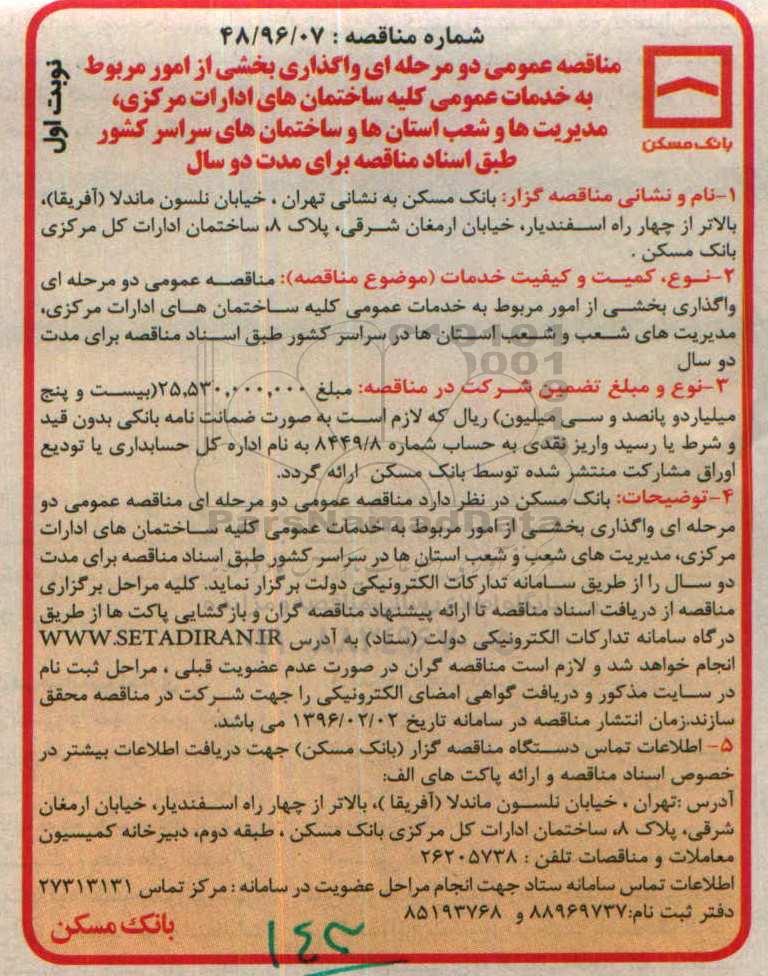 شماره مناقصه : ۴۸/۹۶/۰۷
مناقصه عمومی دو مرحله ای واگذاری بخشی از امور مربوط
به خدمات عمومی کلیه ساختمان های ادارات مرکزی،
مدیریت ها و شعب استان ها و ساختمان های سراسر کشور
طبق اسناد مناقصه برای مدت دو سال
نوبت اول
بانک مسکن
۱-نام و نشانی مناقصه گزار: بانک مسکن به نشانی تهران ، خیابان نلسون ماندلا (آفریقا)،
بالاتر از چهار راه اسفندیار، خیابان ارمغان شرقی، پلاک ۸، ساختمان ادارات کل مرکزی
بانک مسکن .
۲-نوع، کمیت و کیفیت خدمات (موضوع مناقصه): مناقصه عمومی دو مرحله ای
واگذاری بخشی از امور مربوط به خدمات عمومی کلیه ساختمان های ادارات مرکزی،
مدیریت های شعب و شعب استان ها در سراسر کشور طبق اسناد مناقصه برای مدت
دو سال
۳-نوع و مبلغ تضمین شرکت در مناقصه: مبلغ ۲۵,۵۳۰,۰۰۰,۰۰۰(بیست و پنج
میلیاردو پانصد و سی میلیون) ریال که لازم است به صورت ضمانت نامه بانکی بدون قید
و شرط یا رسید واریز نقدی به حساب شماره ۸۴۴۹/۸ به نام اداره کل حسابداری یا تودیع
اوراق مشارکت منتشر شده توسط بانک مسکن ارائه گردد.
۴-توضیحات: بانک مسکن در نظر دارد مناقصه عمومی دو مرحله ای مناقصه عمومی دو
مرحله ای واگذاری بخشی از امور مربوط به خدمات عمومی کلیه ساختمان های ادارات
مرکزی، مدیریت های شعب و شعب استان ها در سراسر کشور طبق اسناد مناقصه برای مدت
دو سال را از طریق سامانه تدارکات الکترونیکی دولت برگزار نماید. کلیه مراحل برگزاری
مناقصه از دریافت اسناد مناقصه تا ارائه پیشنهاد مناقصه گران و بازگشایی پاکت ها از طریق
درگاه سامانه تدارکات الکترونیکی دولت (ستاد) به آدرس WWW.SETADIRAN.IR
انجام خواهد شد و لازم است مناقصه گران در صورت عدم عضویت قبلی ، مراحل ثبت نام
در سایت مذکور و دریافت گواهی امضای الکترونیکی را جهت شرکت در مناقصه محقق
سازند.زمان انتشار مناقصه در سامانه تاریخ ۱۳۹۶/۰۲/۰۲ می باشد.
۵- اطلاعات تماس دستگاه مناقصه گزار (بانک مسکن) جهت دریافت اطلاعات بیشتر در
خصوص اسناد مناقصه و ارائه پاکت های الف:
آدرس :تهران ، خیابان نلسون ماندلا (آفریقا )، بالاتر از چهار راه اسفندیار، خیابان ارمغان
شرقی، پلاک ۸، ساختمان ادارات کل مرکزی بانک مسکن ، طبقه دوم، دبیرخانه کمیسیون
معاملات و مناقصات تلفن : ۲۶۲۰۵۷۳۸
اطلاعات تماس سامانه ستاد جهت انجام مراحل عضویت در سامانه : مرکز تماس ۲۷۳۱۳۱۳۱
دفتر ثبت نام:۸۸۹۶۹۷۳۷ و ۸۵۱۹۳۷۶۸
بانک مسکن